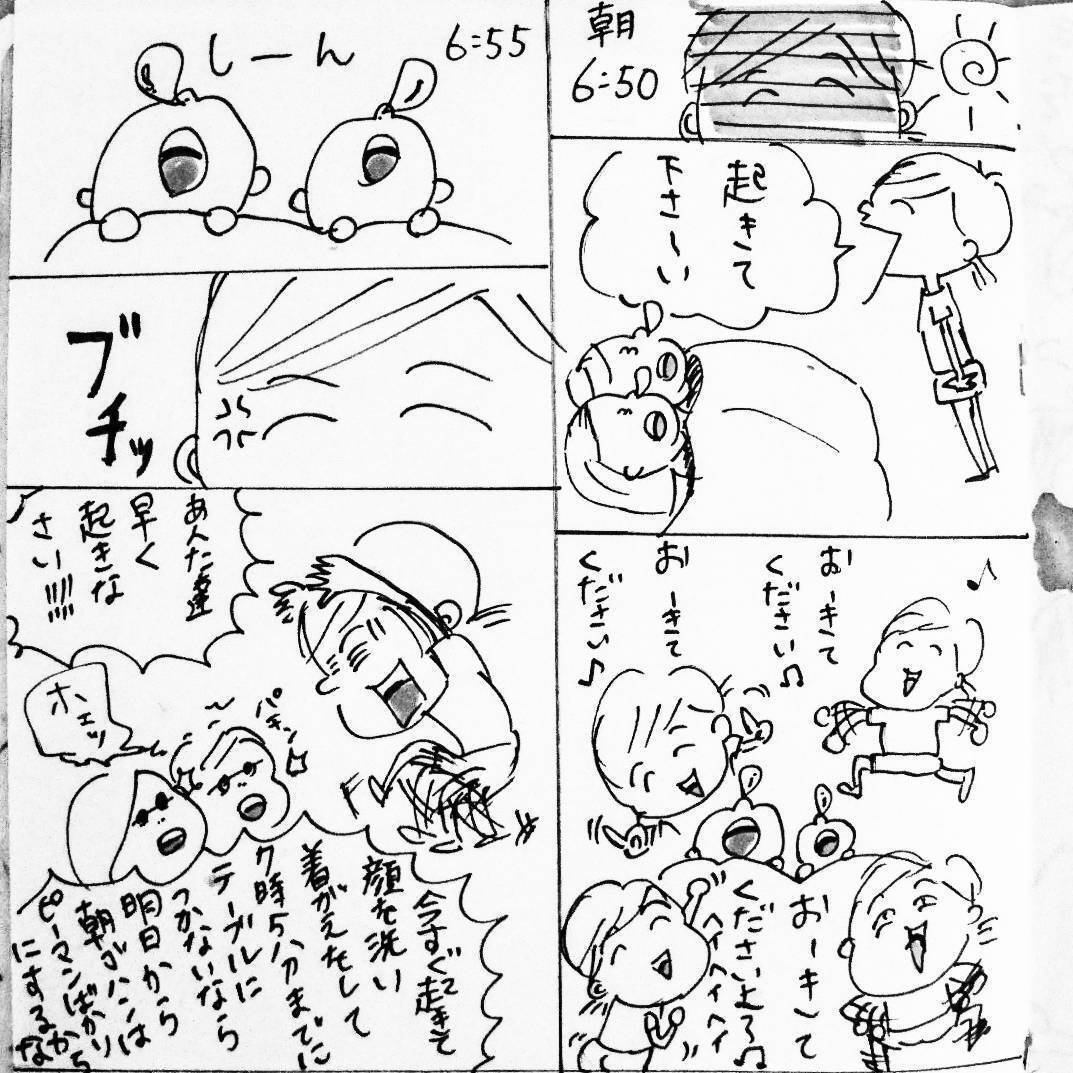 朝
6:50
起きて
下さ〜い
おーきて
ください♫
おーきて
ください♪
おーきて
くださいよろ♫
ヘイヘイヘイ
6:55
しーん
ブチッ
あんた達
早く
起きな
さい!!!!!
ホエッ
パチン
今すぐ起きて
顔を洗い
着がえをして
7時5分までに
テーブルに
つかないなら
明日から
朝ゴハンは
ピーマンばかり
にするからな